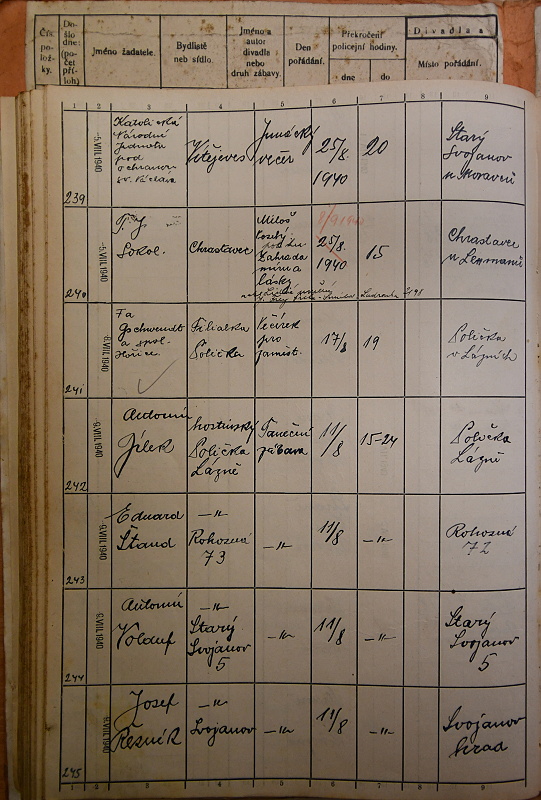 Čís. po- lož- ky.
Do- šlo dne: (po- čet pří- loh)
Jméno žadatele.
Bydliště neb sídlo.
Jméno a autor divadla nebo druh zábavy.
Den pořádání.
Překročení policejní hodiny.
dne
do
Divadla a
Místo pořádání.
1 2 3 4 5 6 7 8 9
Katolická
Národní
Jednota
pod
ochranou
sv. Václava
-5.VIII.1940
Vítějeves
Junácký
večer
25/8.
1940
20
Starý
Svojanov
u Moravců
239
T. J.
Sokol.
-5.VIII.1940
Chrastavec
Miloš
Zahrada
míru a
lásky
8/9 1940
25/8.
1940
15
Chrastavec
240
Fa
Gschwendt
a spol.
Hořice.
1940
Filialka
Polička
Večírek
pro
zaměst.
17/8
19
Polička
v Lázních
241
Antonín
Jílek
-9.VIII.1940
hostinský
Polička
Lázně
Taneční
zábava
11/8
15-24
Polička
Lázně
242
Eduard
Štaud
-9.VIII.1940
-"-
Rohozná
73
-"-
11/8
-"-
Rohozná
72
243
Antonín
9.VIII.1940
-"-
Starý
Svojanov
5
-"-
11/8
-"-
Starý
Svojanov
5
244
Josef
Řezník
9.VIII.1940
-"-
Svojanov
-"-
11/8
-"-
Svojanov
hrad
245
1 2 3 4 5 6 7 8 9